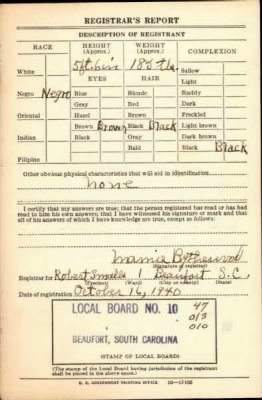 REGISTRAR'S REPORT
DESCRIPTION OF REGISTRANT
RACE HEIGHT (Approx.) WEIGHT (Approx.) COMPLEXION
5 ft. 6 in 185 lb.
White EYES HAIR Sallow
Light
Negro Negro Blue Blonde Ruddy
Gray Red Dark
Oriental Hazel Brown Freckled
Brown Brown Black Black Light brown
Indian Black Gray Dark brown
Bald Black Black
Filipino
Other obvious physical characteristics that will aid in identification
none
I certify that my answers are true; that the person registered has read or has had
read to him his own answers; that I have witnessed his signature or mark and that
all of his answers of which I have knowledge are true, except as follows:
Mamie
(Signature of registrar)
Registrar for Robert Smalls 1 Beaufort S. C.
(Precinct) (Ward) (City or county) (State)
Date of registration October 16, 1940
LOCAL BOARD NO. 10 47
013
010
BEAUFORT, SOUTH CAROLINA
(STAMP OF LOCAL BOARD)
(The stamp of the Local Board having jurisdiction of the registrant
shall be placed in the above space.)
U. S. GOVERNMENT PRINTING OFFICE 16—17105